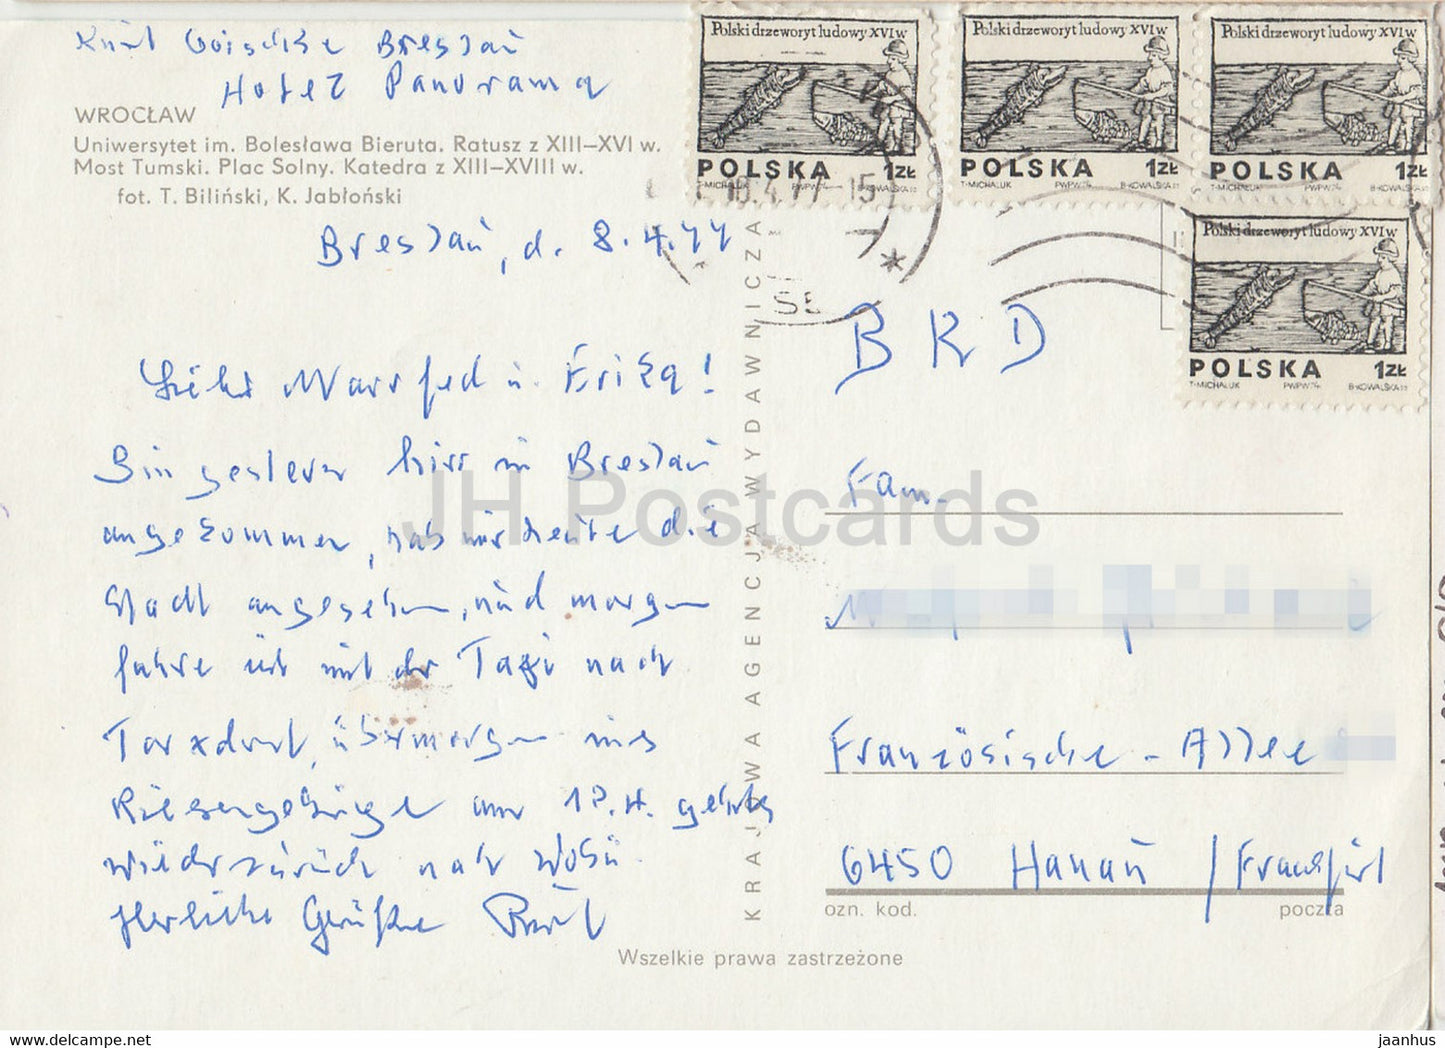 Kurt Breslau
Hotel Panorama
WROCŁAW
Uniwersytet im. Bolesława Bieruta. Ratusz z XIII–XVI w.
Most Tumski. Plac Solny. Katedra z XIII–XVIII w.
fot. T. Biliński, K. Jabłoński
Breslau, d. 8.4.77
Liebe Manfred u. Erika!
Bin gestern hier in Breslau
angekommen, hab mir heute die
Stadt angesehen, und morgen
fahre ich mit der Taxi nach
übermorgen ins
Riesengebirge am 12.4. gehts
wieder zurück nach
Herzliche Grüße Kurt
KRAJOWA AGENCJA WYDAWNICZA
Polski drzeworyt ludowy XVI w
POLSKA 1 ZŁ
T-MICHALUK PWPW'74 B·KOWALSKA
Polski drzeworyt ludowy XVI w
POLSKA 1 ZŁ
T-MICHALUK PWPW'74 B·KOWALSKA
Polski drzeworyt ludowy XVI w
POLSKA 1 ZŁ
T-MICHALUK PWPW'74 B·KOWALSKA
Polski drzeworyt ludowy XVI w
POLSKA 1 ZŁ
T-MICHALUK PWPW'74 B·KOWALSKA
BRD
Fam.
Französische-Allee
6450 Hanau / Frankfurt
ozn. kod. poczta
Wszelkie prawa zastrzeżone
JH Postcards
https://www.hippostcard.com
jaanhus